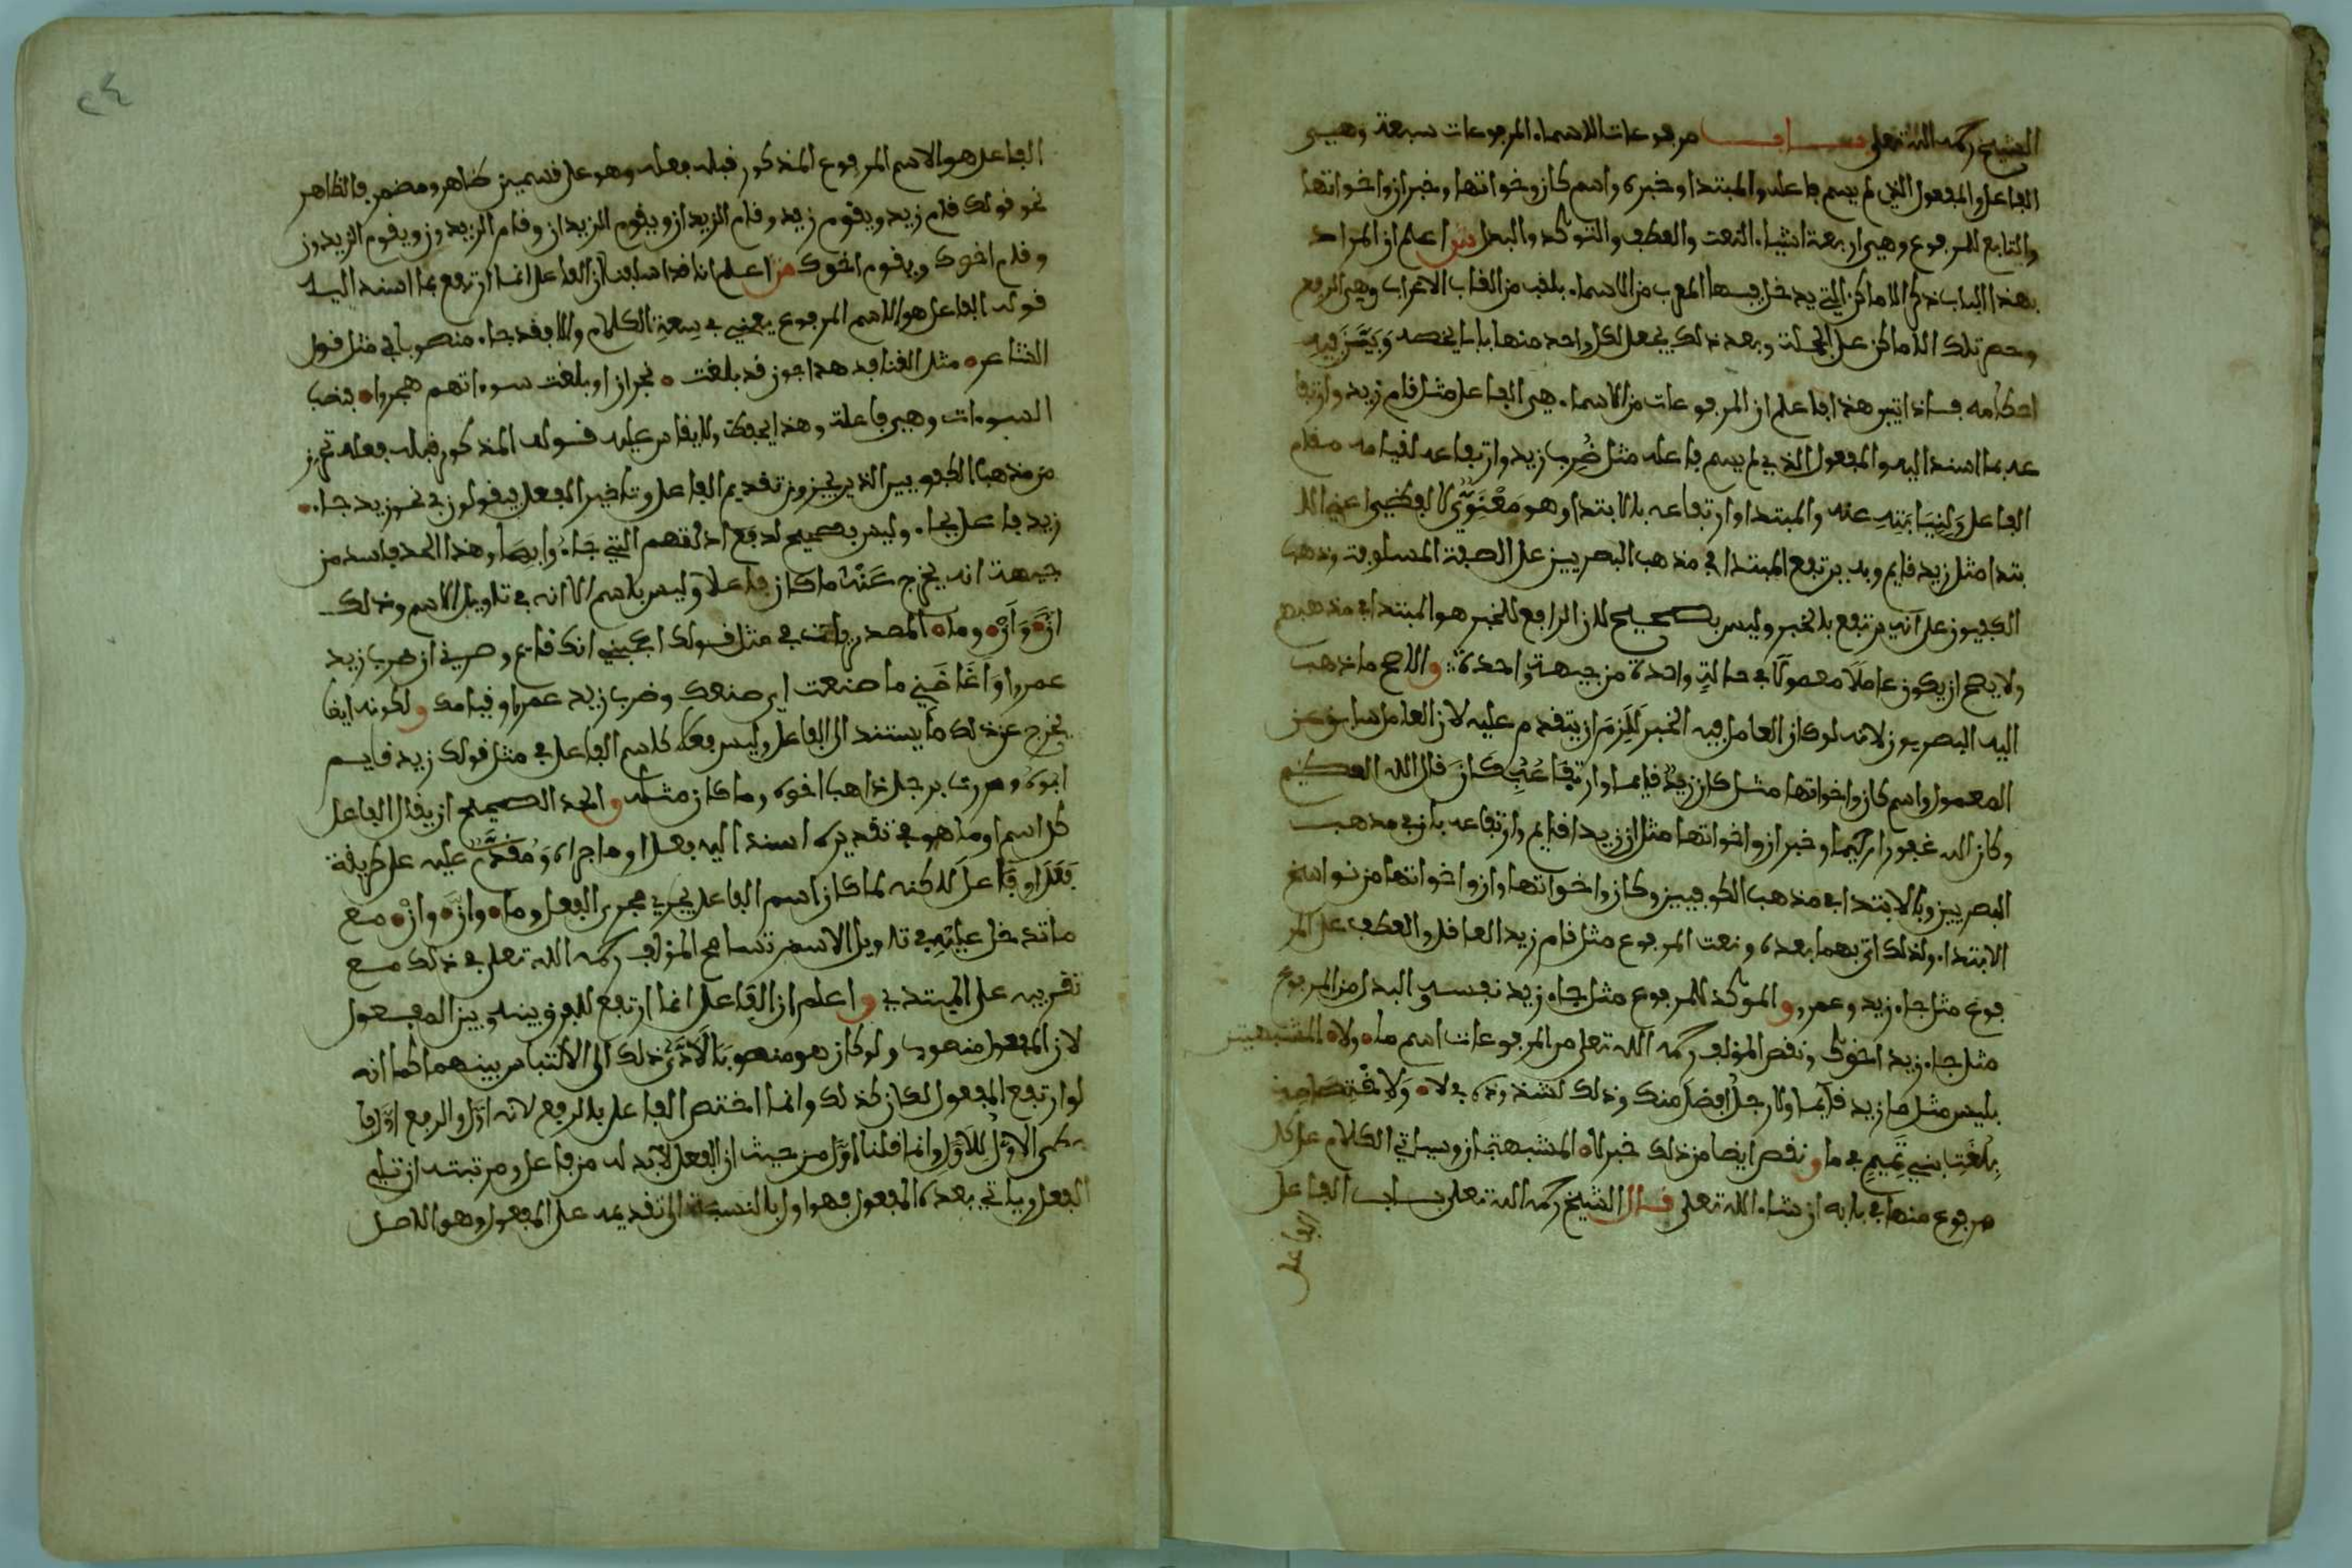 الشيخ رحمه الله تعلى بــاب مرفوعات الاسماء المرفوعات سبعة وهي
الفاعل والمفعول الذي لم يسم فاعله والمبتدا وخبره واسم كان وخواتها وخبر ان واخواتها
والتابع للمرفوع وهي اربعة اشياء النعت والعطف والتوكد والبدل اعلم ان المراد
بهذا الباب ذكر الاماكن التي يدخل فيها المعرب من الاسماء بلقب من القاب الاعراب وهي الرفع
وحصر تلك الاماكن على الجملة وبعد ذلك يجعل لكل واحد منها بابا يخصه ويبين فيه
احكامه فاعلم ان المرفوعات من الاسماء هي الفاعل مثل قام زيد وارتفا
عه بما اسند اليه والمفعول الذي لم يسم فاعله مثل ضُرِب زيد وارتفاعه لقيامه مقام
الفاعل ولنيابته عنه والمبتدا وارتفاعه بالابتدا وهو معنوي لا لفظي اعني الا
بتدا مثل زيد قايم وبه يرتفع المبتدا في مذهب البصريين على الصفة وذهب
الكوفيون على انه يرتفع بالخبر وليس بصحيح لان الرافع للخبر هو المبتدا في مذهبهم
ولا يصح ان يكون عاملا معمولا في حالة واحدة من جهة واحدة والاصح ما ذهب
اليه البصريون لانه لو كان العامل فيه الخبر للزم ان يتقدم عليه لان العامل سابق عن
المعمول واسم كان واخواتها مثل كان زيد قايما وارتفاعه بكان قال الله العظيم
وكان الله غفورا رحيما وخبر ان واخواتها مثل ان زيدا قايم وارتفاعه بان في مذهب
البصريين وبالابتدا في مذهب الكوفيين وكان واخواتها وان واخواتها من نواسخ
الابتداء ولذلك اتى بهما بعده ونعت المرفوع مثل قام زيد العاقل والعطف على المر
فوع مثل جاء زيد وعمرو والموكد للمرفوع مثل جاء زيد نفسه والبدل من المرفوع
مثل جاء زيد اخوك ونقص المؤلف رحمه الله تعلى من المرفوعات اسم ما ولا المشبهتين
بليس مثل ما زيد قايما ولا رجل افضل منك وذلك لشذوذه في لا
بلغة بني تميم في ما ونقص ايضا من ذلك خبر لا المشبهة بان وسياتي الكلام على كل
مرفوع منها في بابه ان شاء الله تعلى قال الشيخ رحمه الله تعلى باب الفاعل
الفاعل
٢٤
الفاعل هو الاسم المرفوع المذكور قبله فعله وهو على قسمين ظاهر ومضمر فالظاهر
نحو قولك قام زيد ويقوم زيد وقام الزيدان ويقوم الزيدان وقام الزيدون ويقوم الزيدون
وقام اخوك ويقوم اخوك اعلم انا قد اسلفنا ان الفاعل انما ارتفع بما اسند اليه
قوله الفاعل هو الاسم المرفوع يعني في سعة الكلام والا فقد جاء منصوبا في مثل قول
الشاعر مثل القنافذ هداجون قد بلغت نجران او بلغت سوءاتهم هجروا فنصب
السوءات وهي فاعلة وهذا يحفظ ولا يقاس عليه قوله المذكور قبله فعله تحرز
من مذهب الكوفيين الذين يجيزون تقديم الفاعل وتاخير الفعل فيقولون في نحو زيد جاء
زيد فاعل بجاء وليس بصحيح وهذا الحد فاسد من
جهة انه يخرج عنه ما كان فاعلا وليس باسم الا انه في تاويل الاسم وذلك
انَّ وانْ وما المصدريات في مثل قولك اعجبني انك قايم وسرني ان ضرب زيد
عمروا ما صنعت اي صنعك وضرب زيد عمرا وقيامك ولكونه ايضا
يخرج عن ذلك ما يستند الى الفاعل وليس فعلا كاسم الفاعل في مثل قولك زيد قايم
ابوه ومررت برجل ذاهب اخوه وما كان مثله والحد الصحيح ان يقال الفاعل
كل اسم او ما هو في تقديره اسند اليه فعل او ما جراه ومقدم عليه على طريقة
فَعَلَ او فاعل لاكنه لما كان اسم الفاعل يجري مجرى الفعل وما وانَّ وانْ مع
ما تدخل عليه في تاويل الاسم تسامح المؤلف رحمه الله تعلى في ذلك مع
تقريبه على المبتدي واعلم ان الفاعل انما ارتفع للفرق بينه وبين المفعول
لان المفعول منصوب ولو كان هو منصوبا لادى ذلك الى الالتباس بينهما كما انه
لو ارتفع المفعول لكان كذلك وانما اختص الفاعل بالرفع لانه اوَّل والرفع اوَّل
الاول للاول وانما قلنا اوَّل من حيث ان الفعل لابد له من فاعل ومرتبته ان
الفعل وياتي بعده المفعول فهو اول بالنسبة الى تقديمه على المفعول وهو الاصل